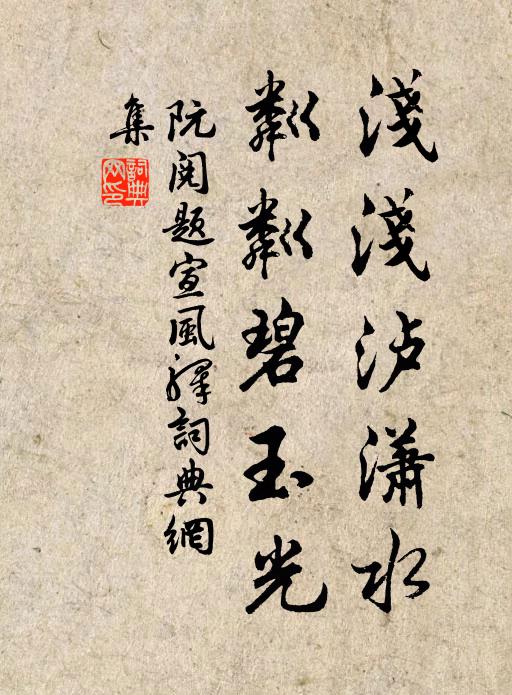 淺淺泸瀟水
粼粼碧玉光
阮閱題宣風驛詞典網
集
詞典
网印